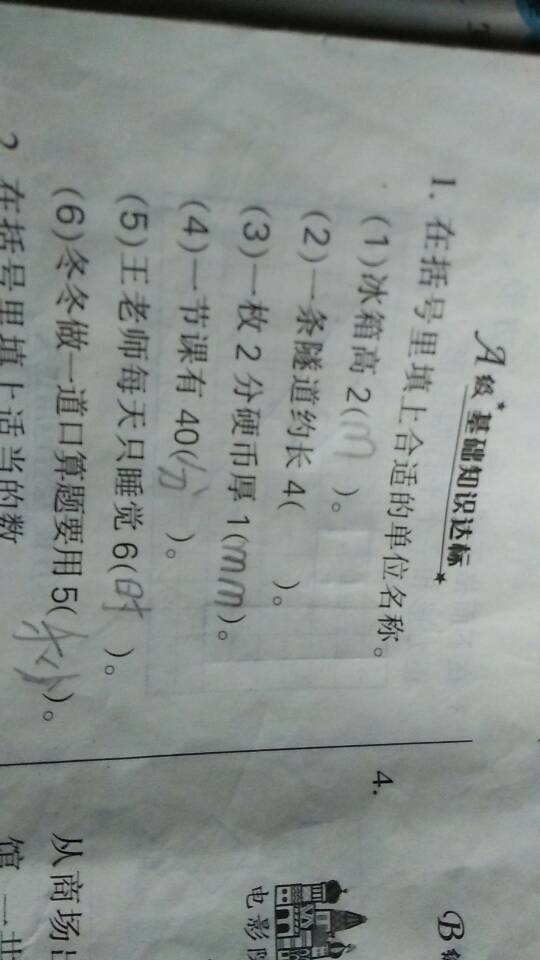 A级 基础知识达标
1. 在括号里填上合适的单位名称。
(1)冰箱高2(m)。
(2)一条隧道约长4( )。
(3)一枚2分硬币厚1(mm)。
(4)一节课有40(分)。
(5)王老师每天只睡觉6(时)。
(6)冬冬做一道口算题要用5(秒)。
2 在括号里填上适当的数
4.
B级
电影院
从商场出
馆 一共